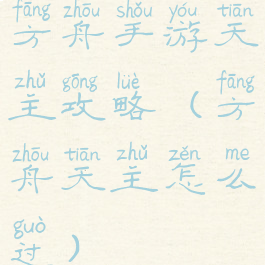 fāng zhōu shǒu yóu tiān
方舟手游天
zhǔ gōng lüè fāng
主攻略（方
zhōu tiān zhǔ zěn me
舟天主怎么
guò
过）